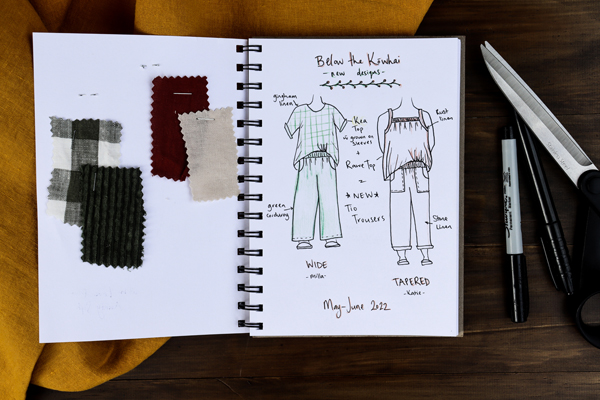 Below the Kōwhai
- new designs -
gingham
linen
Kea
Top
w grown on
sleeves
+
Rawe Top
=
*NEW*
Tio
Trousers
Rust
linen
green
corduroy
Stone
Linen
WIDE
- milla -
TAPERED
- Katie -
May-June 2022
Sharpie